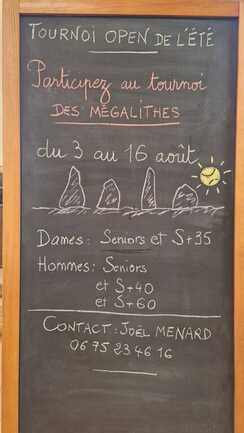 TOURNOI OPEN DE L'ÉTÉ
Participez au tournoi
DES MÉGALITHES
du 3 au 16 août
Dames: Seniors et S+35
Hommes: Seniors
et S+40
et S+60
CONTACT: JOËL MENARD
06 75 23 46 16